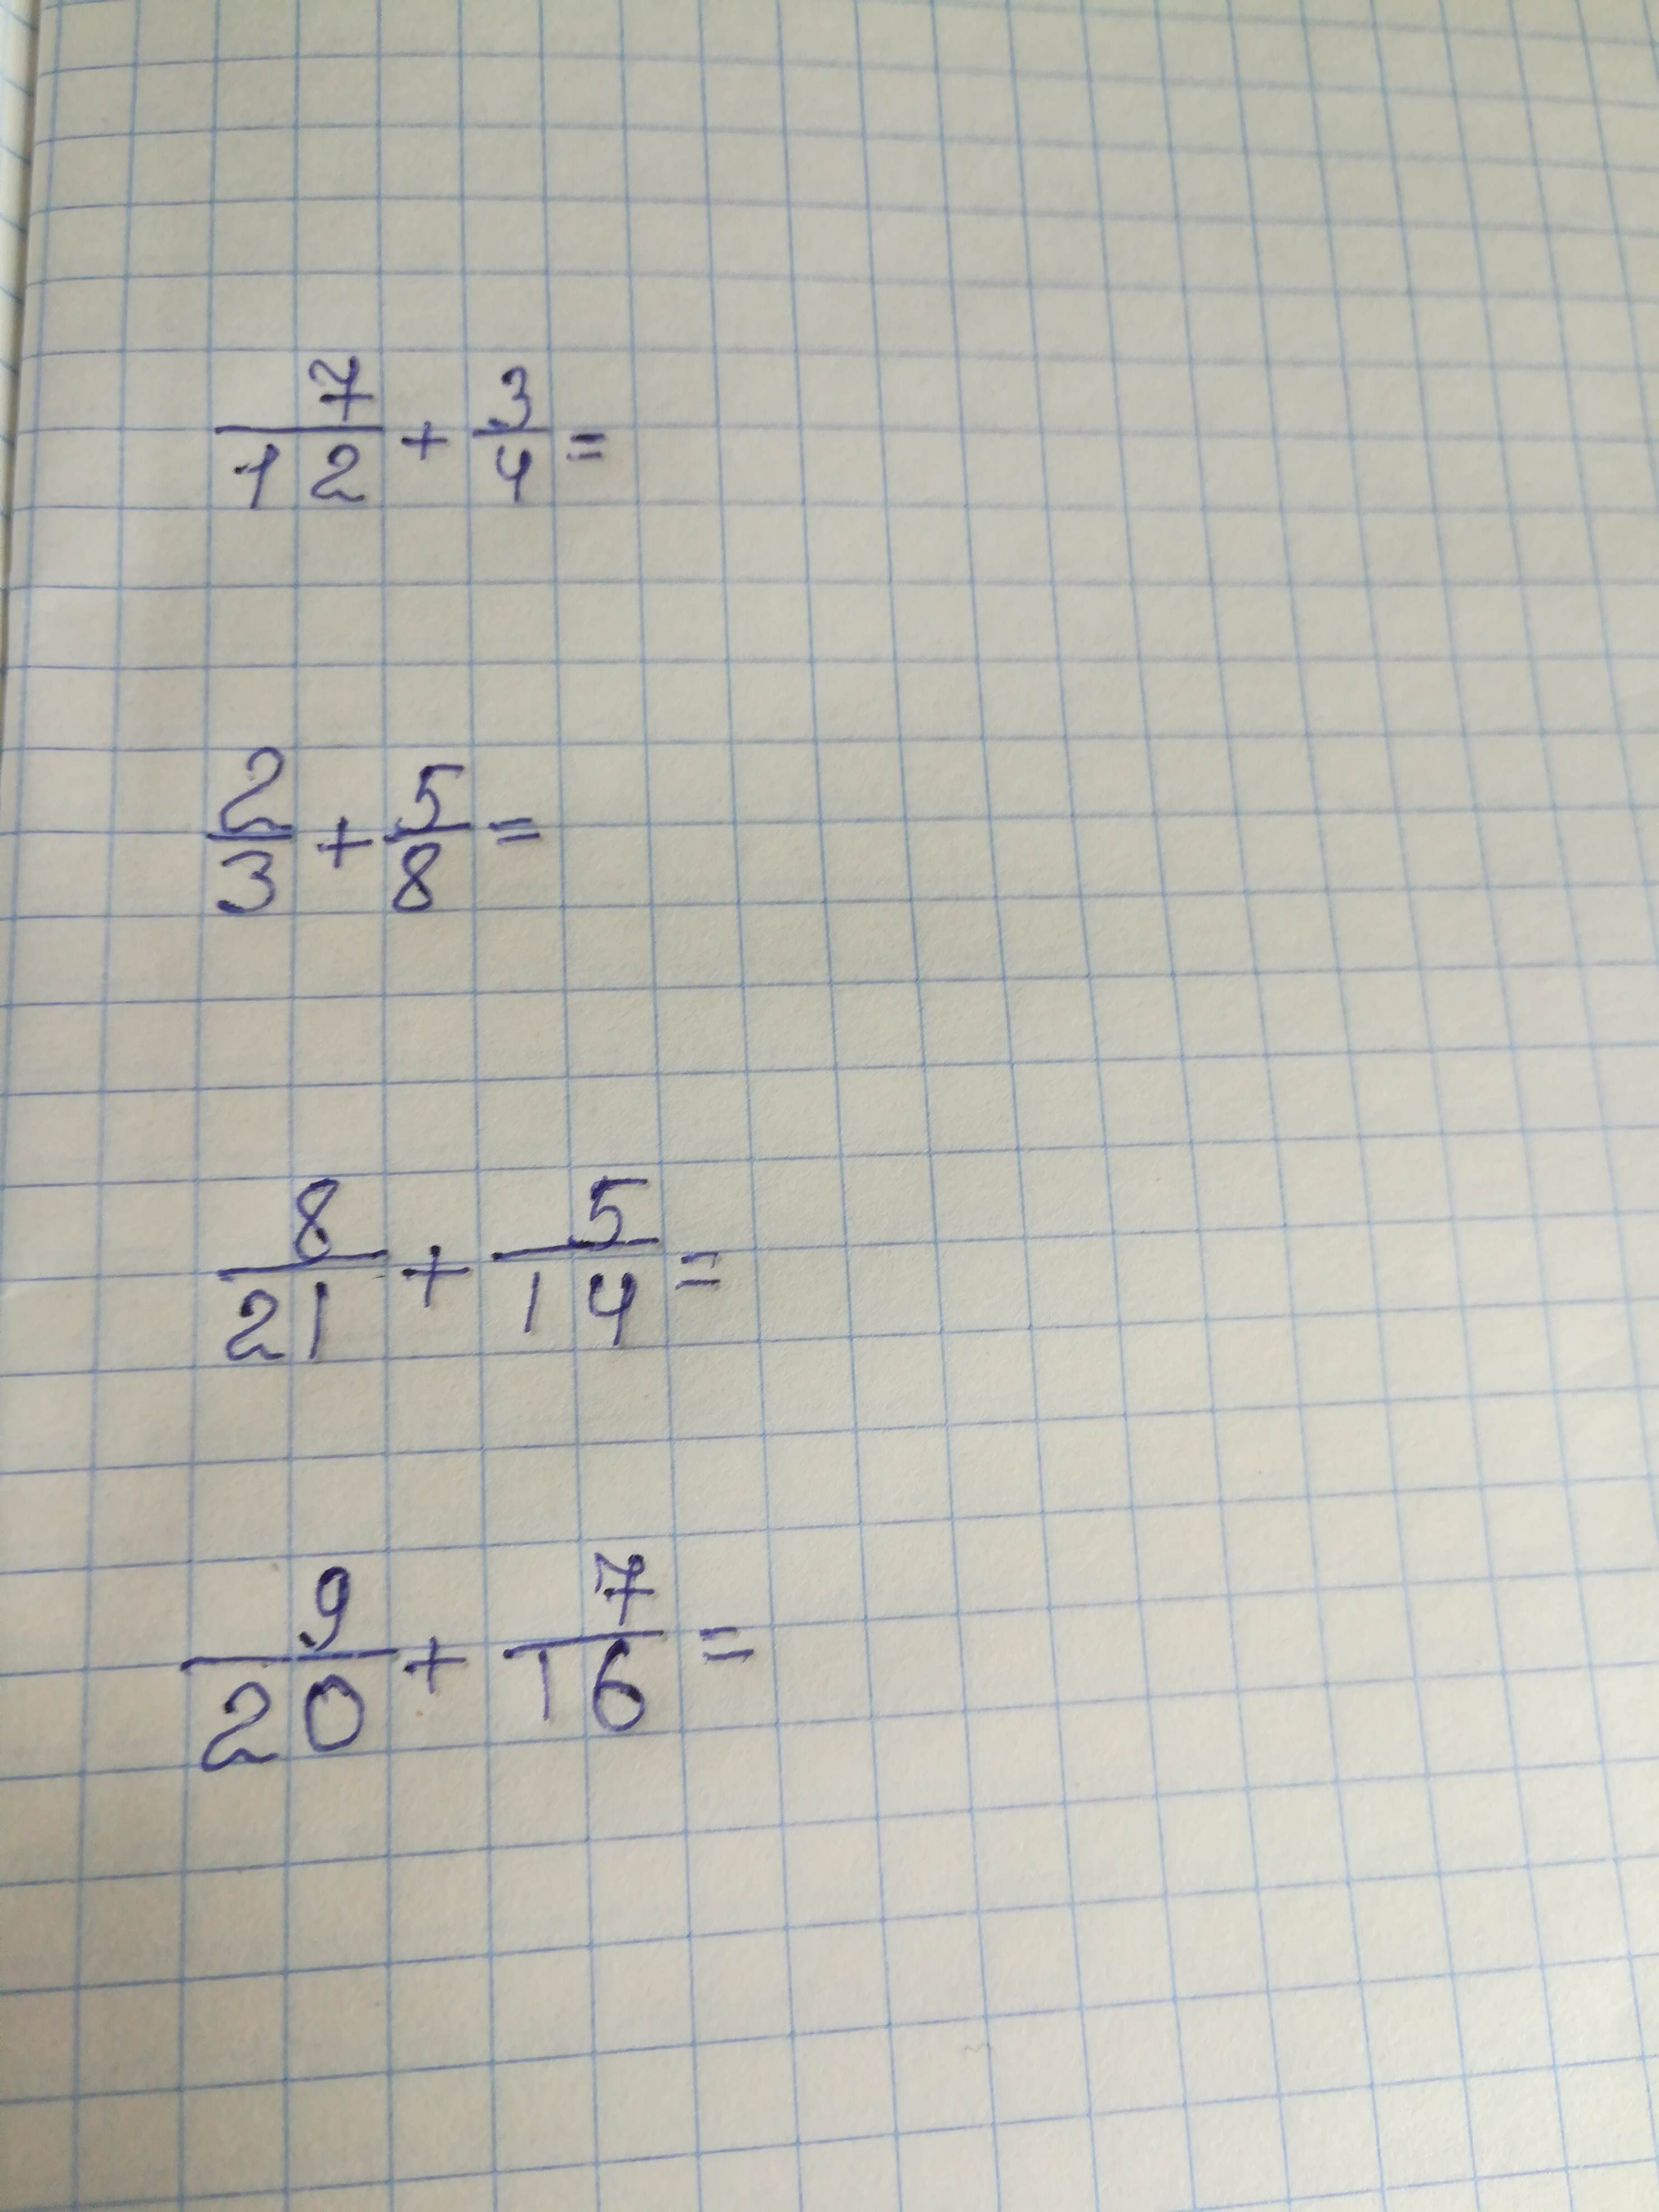 7/12 + 3/4 =
2/3 + 5/8 =
8/21 + 5/14 =
9/20 + 7/16 =